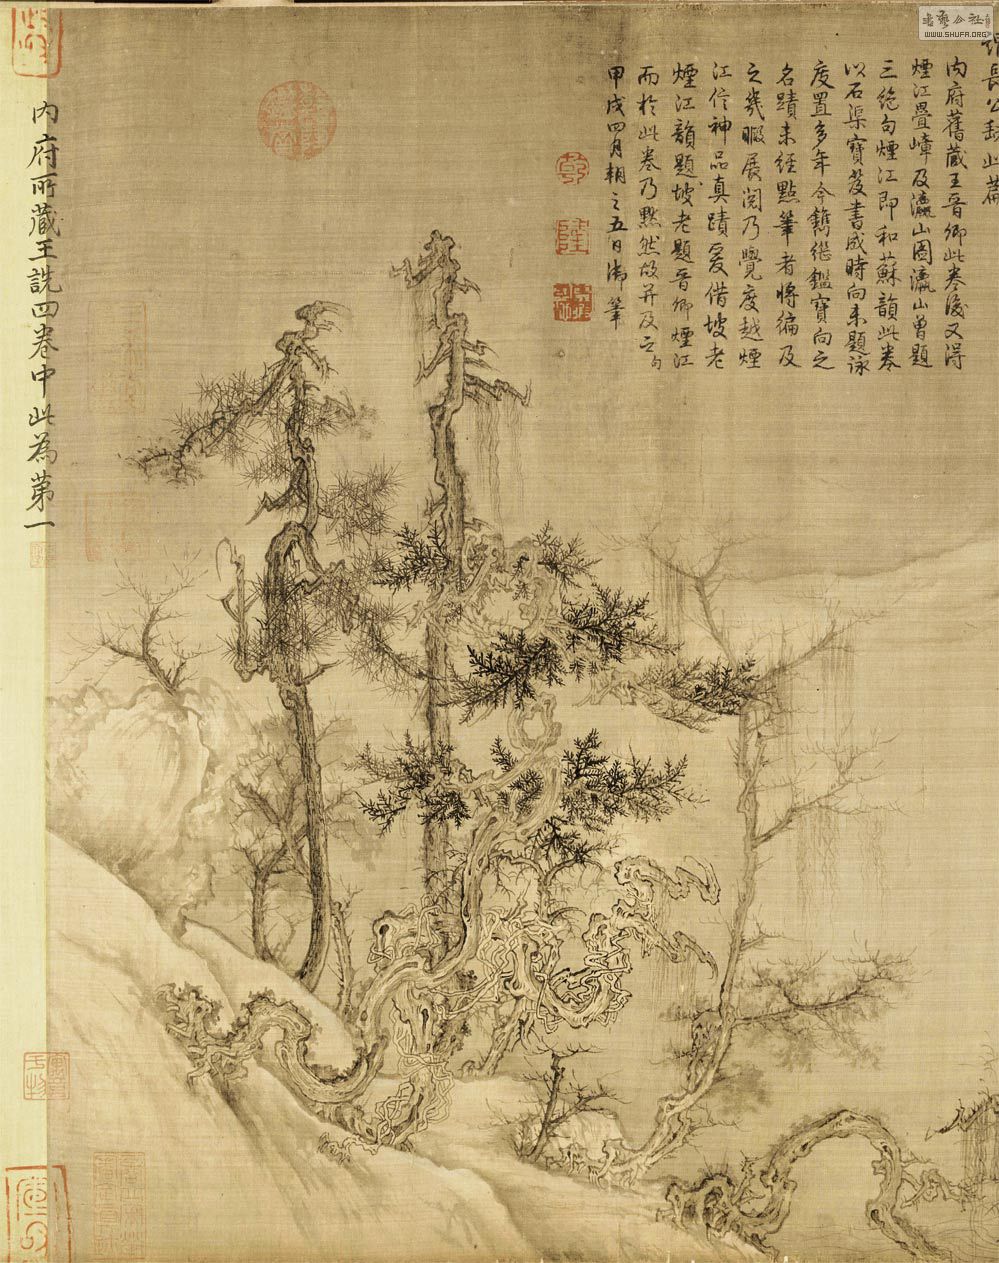 書藝公社
WWW.SHUFA.ORG
長公
此篇
內府舊蔵王晉卿此卷後又淂
煙江疊嶂及瀛山圖瀛山曾題
三絕句煙江即和蘇韻此卷
以石渠寶笈書成時向未題詠
庋置多年今
鑑寶向之
名蹟未經點筆者將徧及
之幾暇展閱乃覺度越煙
江信神品真蹟爰借坡老
煙江韻題坡老題晉卿煙江
而於此卷乃黙然故并及之
甲戌四月朔之五日御筆
乾
隆
內府所藏王詵四卷中此為第一